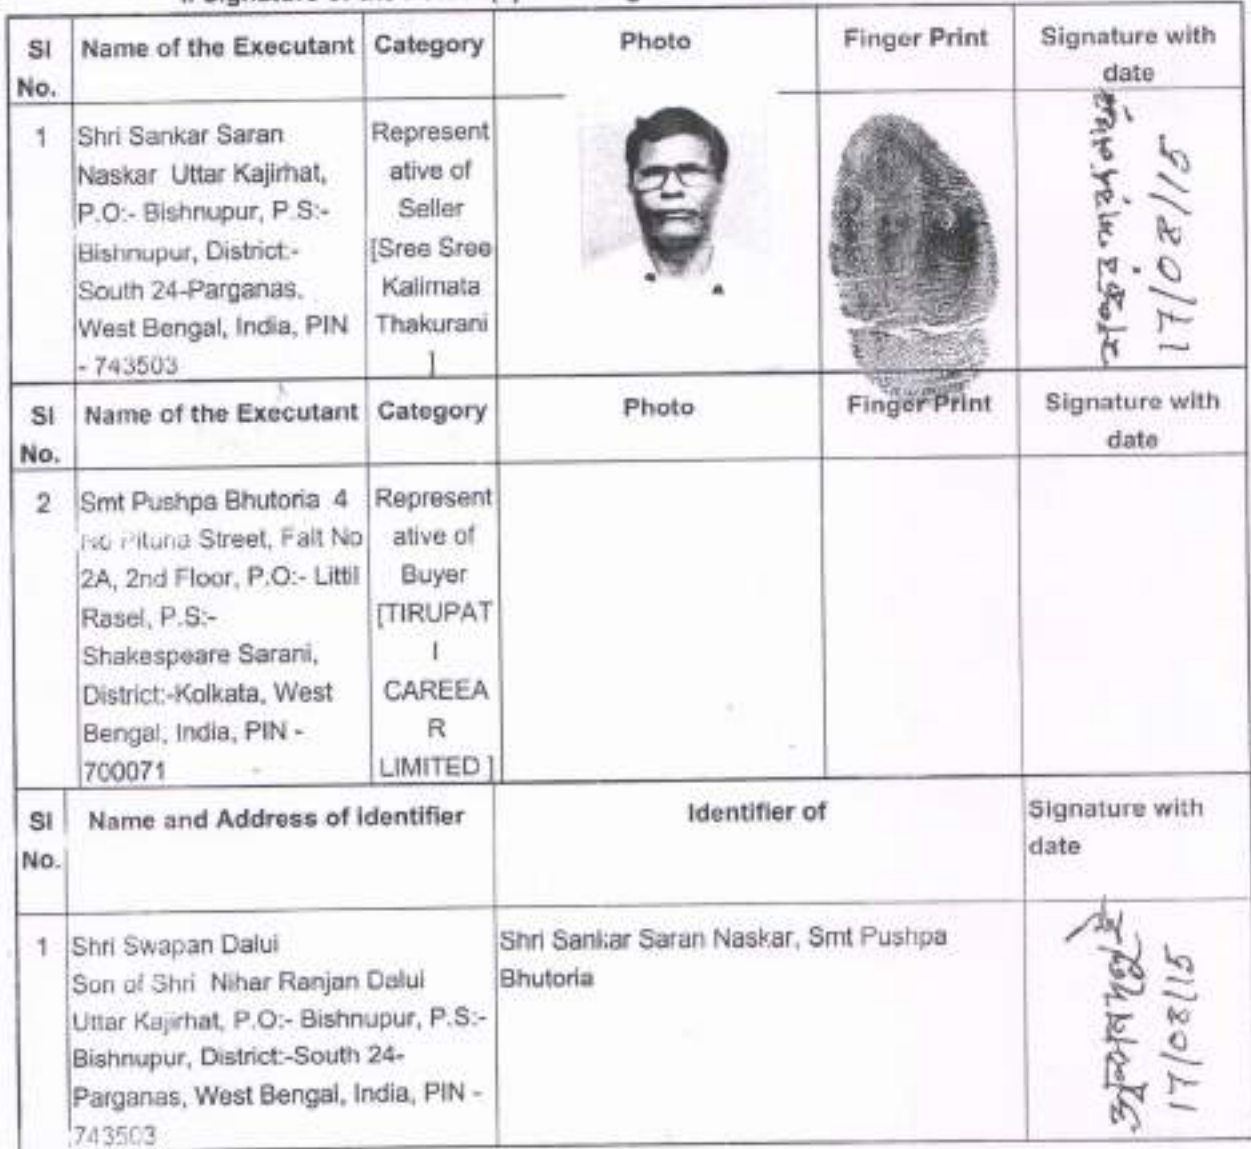 Signature of the
SI No. Name of the Executant Category Photo Finger Print Signature with date
1
Shri Sankar Saran
Naskar Uttar Kajirhat,
P.O:- Bishnupur, P.S:-
Bishnupur, District:-
South 24-Parganas,
West Bengal, India, PIN
- 743503
Represent
ative of
Seller
[Sree Sree
Kalimata
Thakurani
]
17/08/15
SI No. Name of the Executant Category Photo Finger Print Signature with date
2
Smt Pushpa Bhutoria 4
Street, Falt No
2A, 2nd Floor, P.O:- Littil
Rasel, P.S:-
Shakespeare Sarani,
District:-Kolkata, West
Bengal, India, PIN -
700071
Represent
ative of
Buyer
[TIRUPAT
I
CAREEA
R
LIMITED ]
SI No. Name and Address of identifier Identifier of Signature with date
1
Shri Swapan Dalui
Son of Shri Nihar Ranjan Dalui
Uttar Kajirhat, P.O:- Bishnupur, P.S:-
Bishnupur, District:-South 24-
Parganas, West Bengal, India, PIN -
743503
Shri Sankar Saran Naskar, Smt Pushpa
Bhutoria
17/08/15